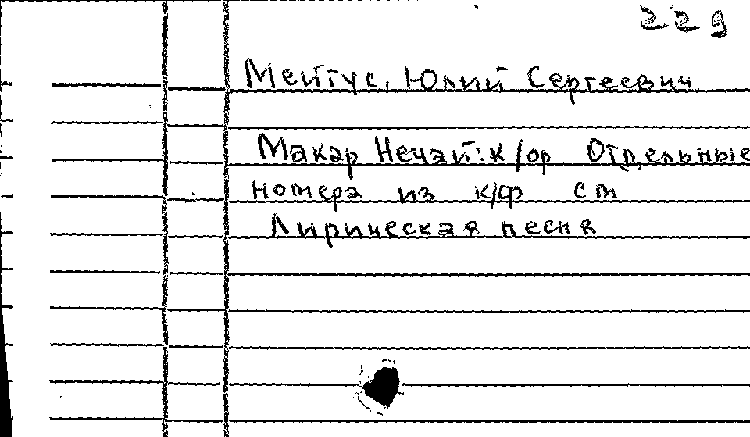 229
Мейтус, Юлий Сергеевич
Макар Нечай: к/ор Отдельные
номера из к/ф ст
Лирическая песня